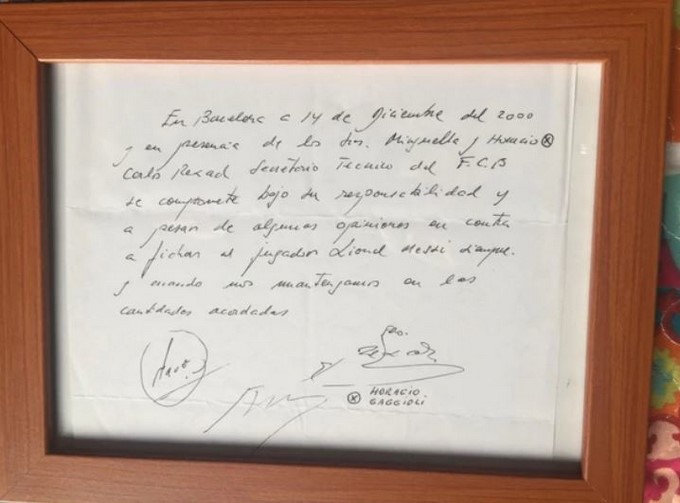 En Barcelona a 14 de Diciembre del 2000
y en presencia de los Sres. Minguella y Horacio ⊗
Carlos Rexach Secretario Tecnico del F.C.B
se compromete bajo su responsabilidad y
a pesar de algunas opiniones en contra
a fichar al jugador Lionel Messi siempre
y cuando nos mantengamos en las
cantidades acordadas
⊗ HORACIO
GAGGIOLI